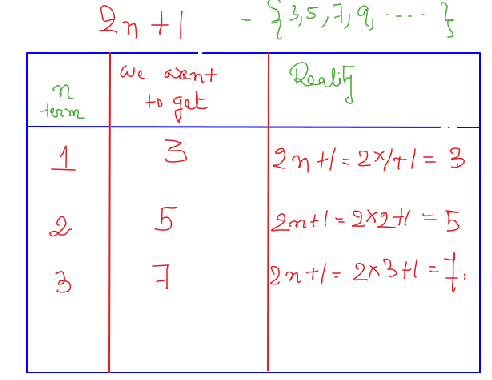 2n+1 - {3,5,7,9, ..... }
n term We want to get Reality
1 3 2n+1 = 2×1+1 = 3
2 5 2n+1 = 2×2+1 = 5
3 7 2n+1 = 2×3+1 = 7.